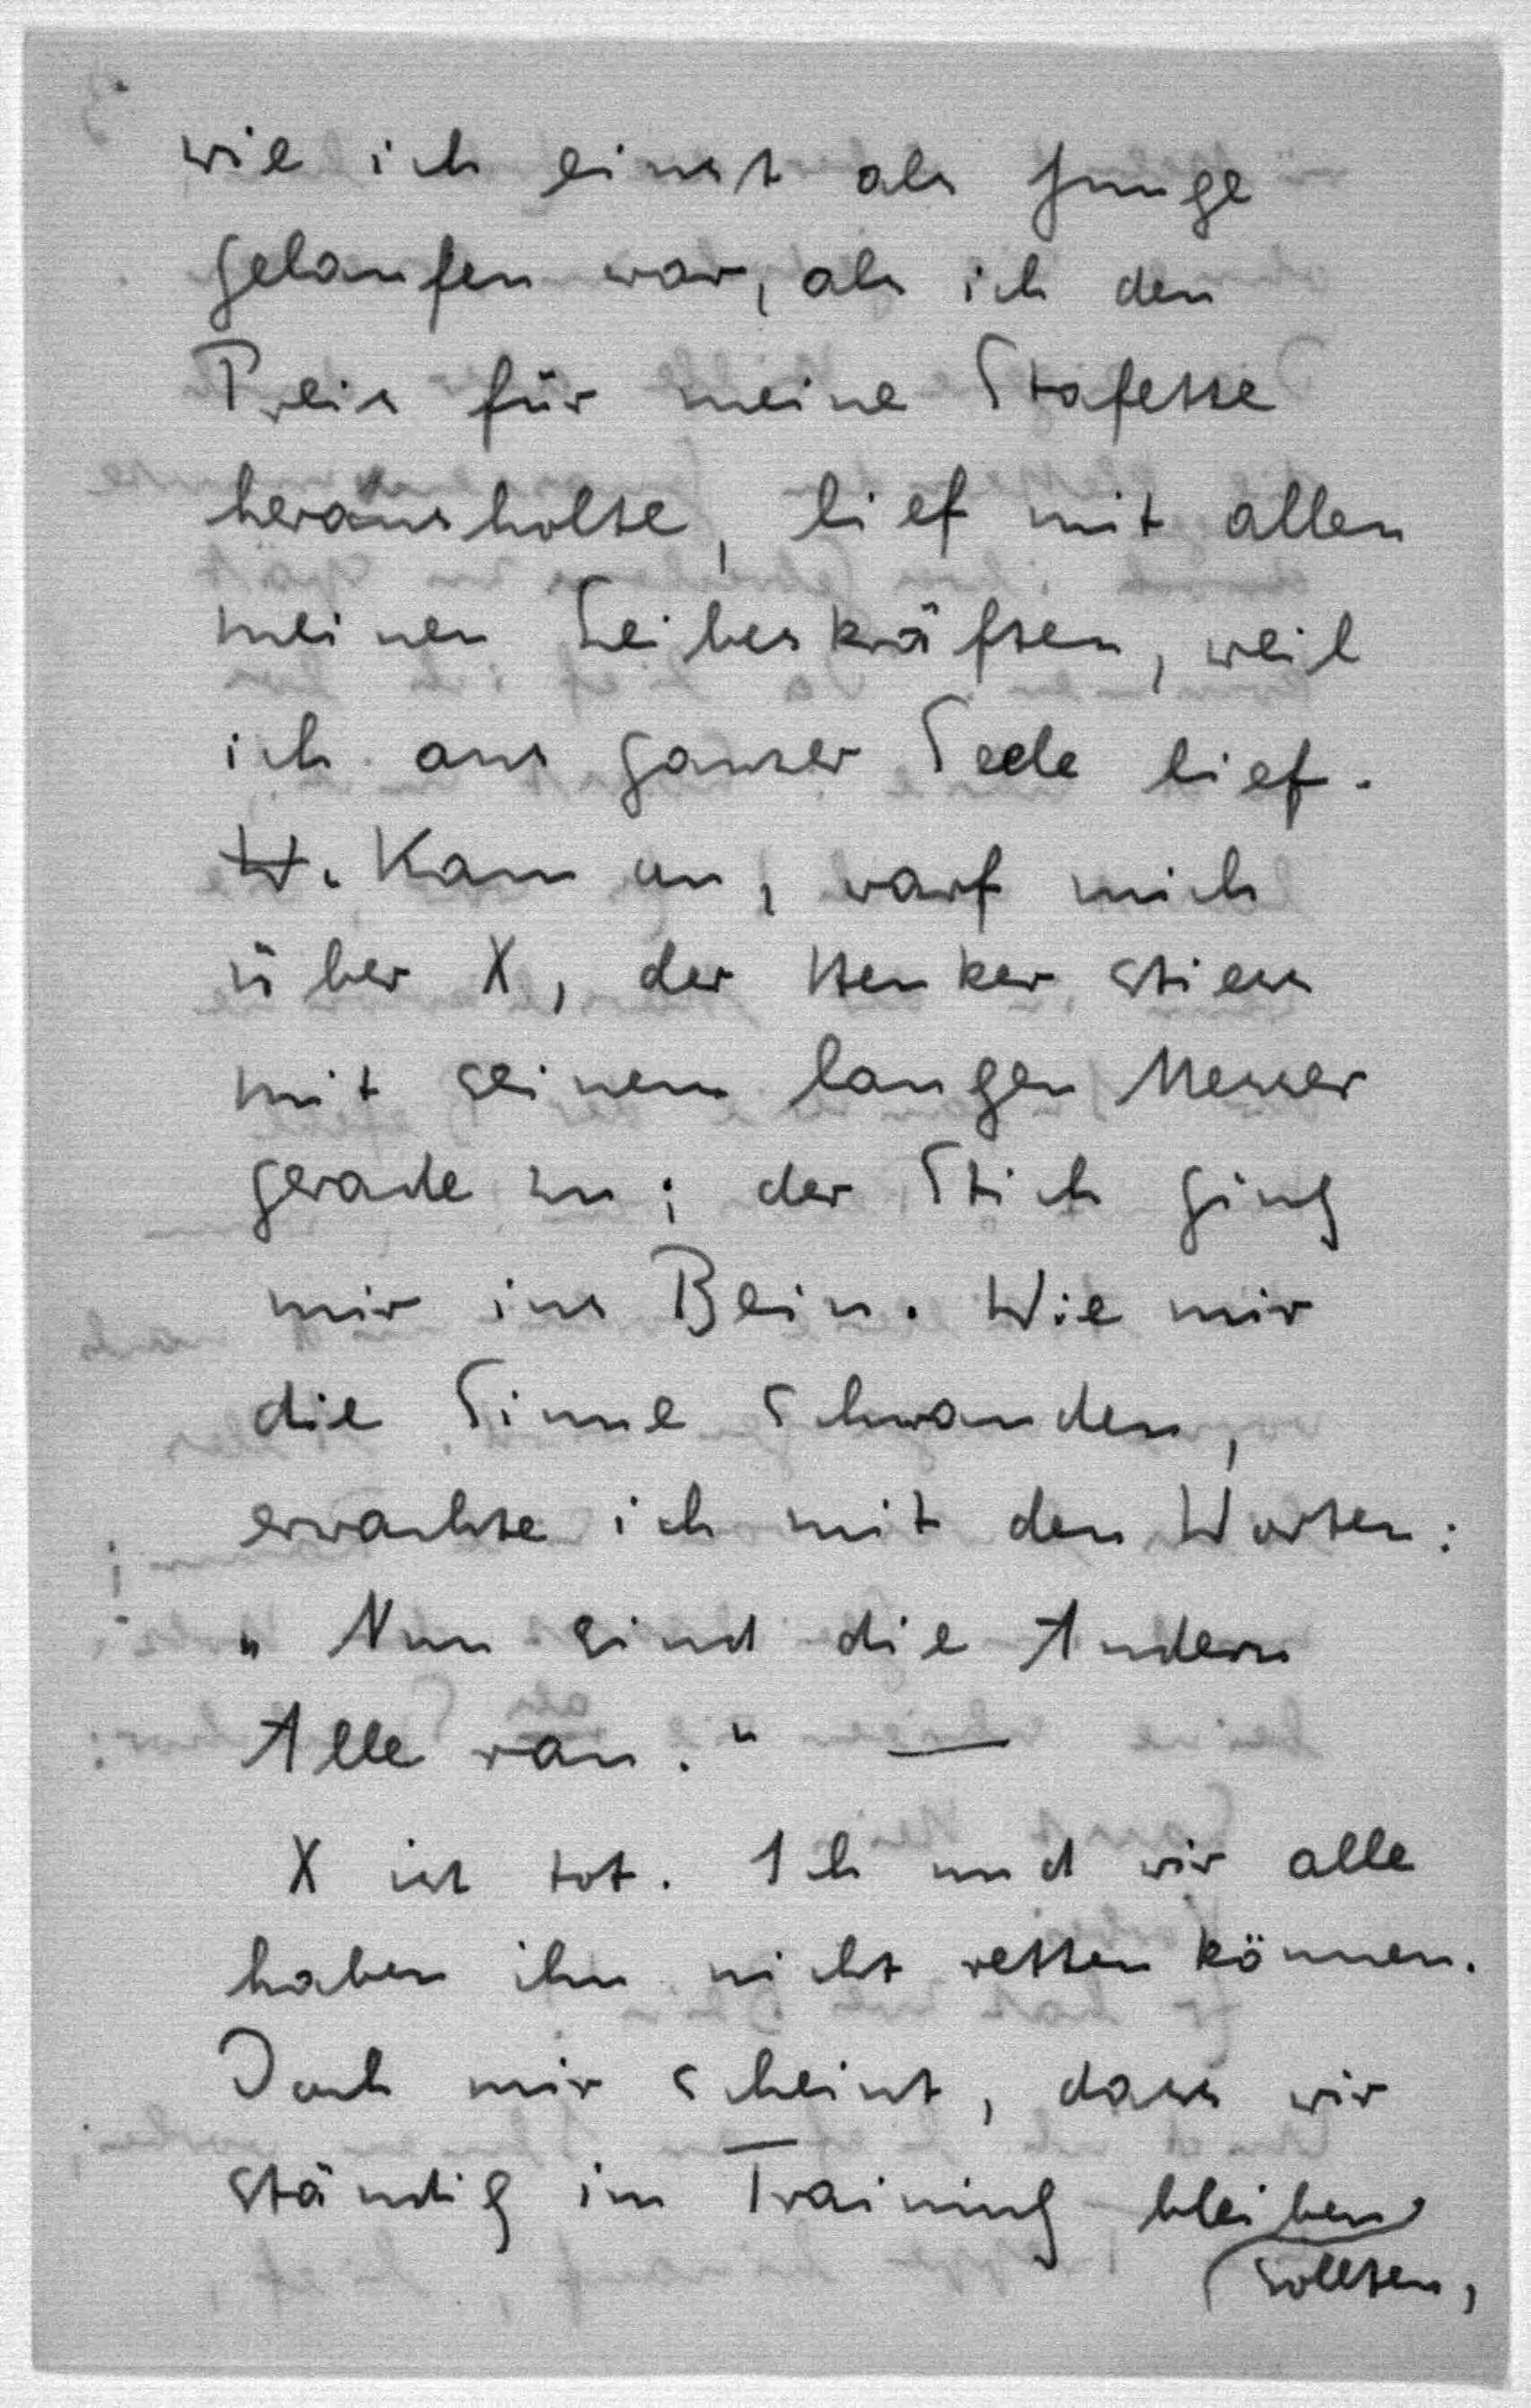 wie ich einst als Junge
gelaufen war, als ich den
Preis für meine Stafette
herausholte, lief mit allen
meinen Leibeskräften, weil
ich aus ganzer Seele lief.
W. Kam an, warf mich
über X, der Henker stiess
mit seinem langen Messer
gerade zu; der Stich ging
mir ins Bein. Wie mir
die Sinne schwanden,
erwachte ich mit den Worten:
"Nun sind die Andern
Alle ran." —
X ist tot. Ich und wir alle
haben ihn nicht retten können.
Doch mir scheint, dass wir
ständig im Training bleiben
sollten,